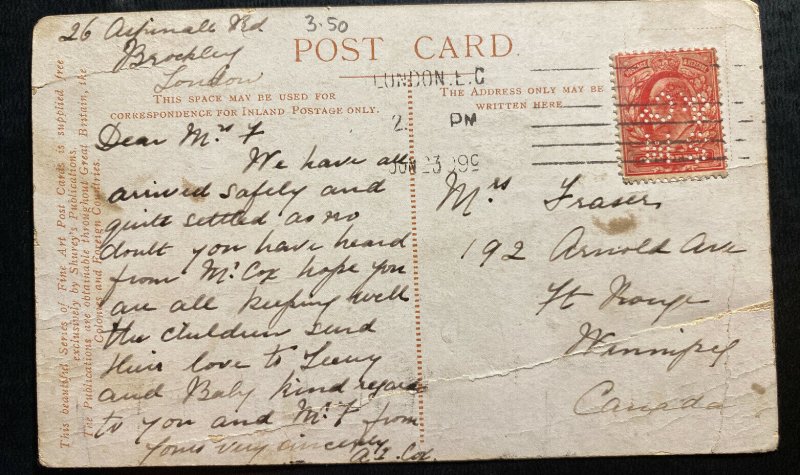 26 Aspinall Rd
Brockley
London
3.50
POST CARD.
THIS SPACE MAY BE USED FOR
CORRESPONDENCE FOR INLAND POSTAGE ONLY.
THE ADDRESS ONLY MAY BE
WRITTEN HERE.
LONDON. E.C
2. PM
JUN 23 09
Dear Mrs F
We have all
arrived safely and
quite settled as no
doubt you have heard
from Mr Cox hope you
are all keeping well
the children send
their love to
and Baby kind regards
to you and Mr F from
Yours very sincerely
A. Cox.
Mrs Fraser
192 Arnold Ave
Ft Rouge
Winnipeg
Canada
This beautiful Series of Fine Art Post Cards is supplied free
exclusively by Shurey's Publications.
The Publications are obtainable throughout Great Britain, the
Colonies and Foreign Countries.